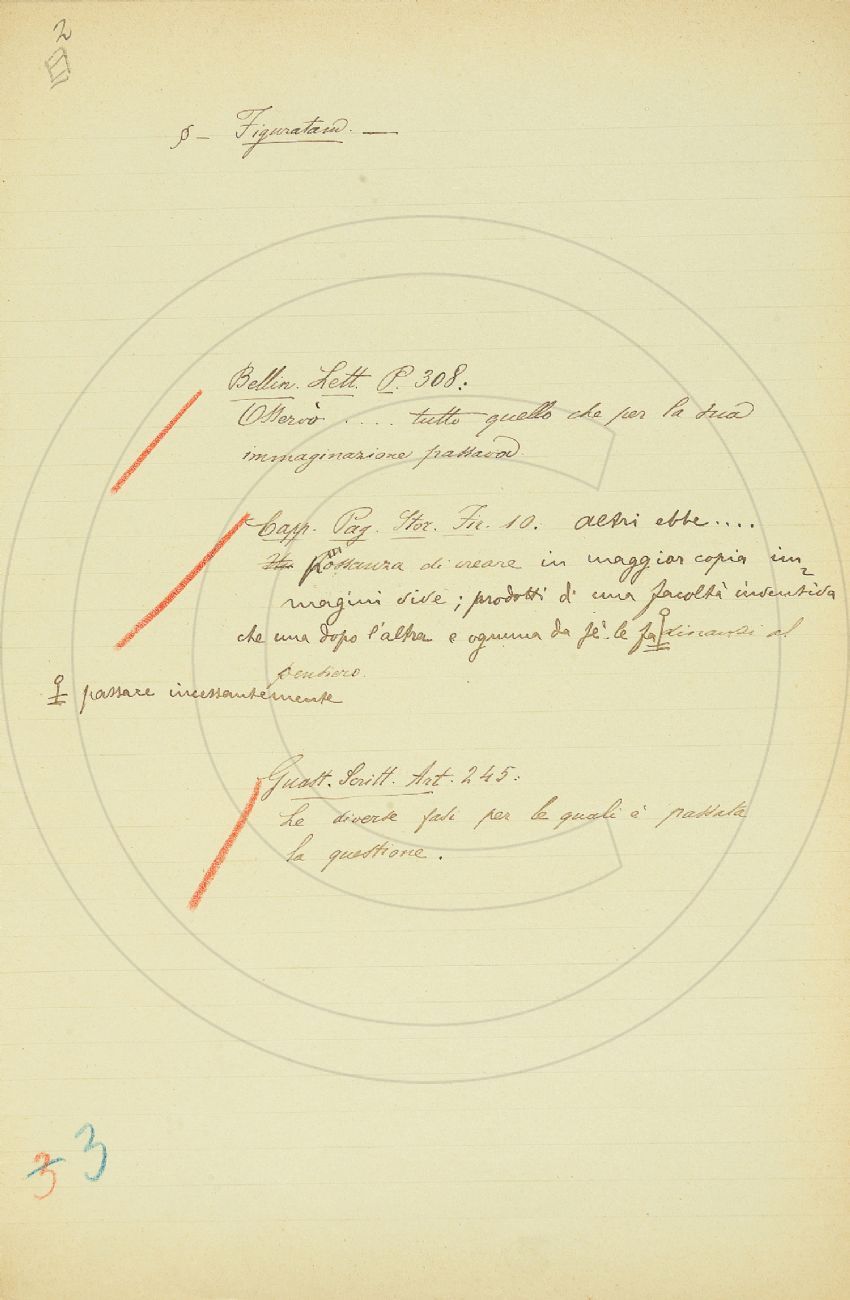 2
§ – Figuratam. —
Bellin. Lett. P. 308:
Osservò .... tutto quello che per la sua
immaginazione passava.
Capp. Pag. Stor. Fir. 10. altri ebbe....
possanza di creare in maggior copia im=
magini vive; prodotti di una facoltà inventiva
che una dopo l'altra e ognuna da sè le fa dinanzi al
pensiero.
passare incessantemente
Guast. Scritt. Art. 245:
Le diverse fasi per le quali è passata
la questione.
3 3